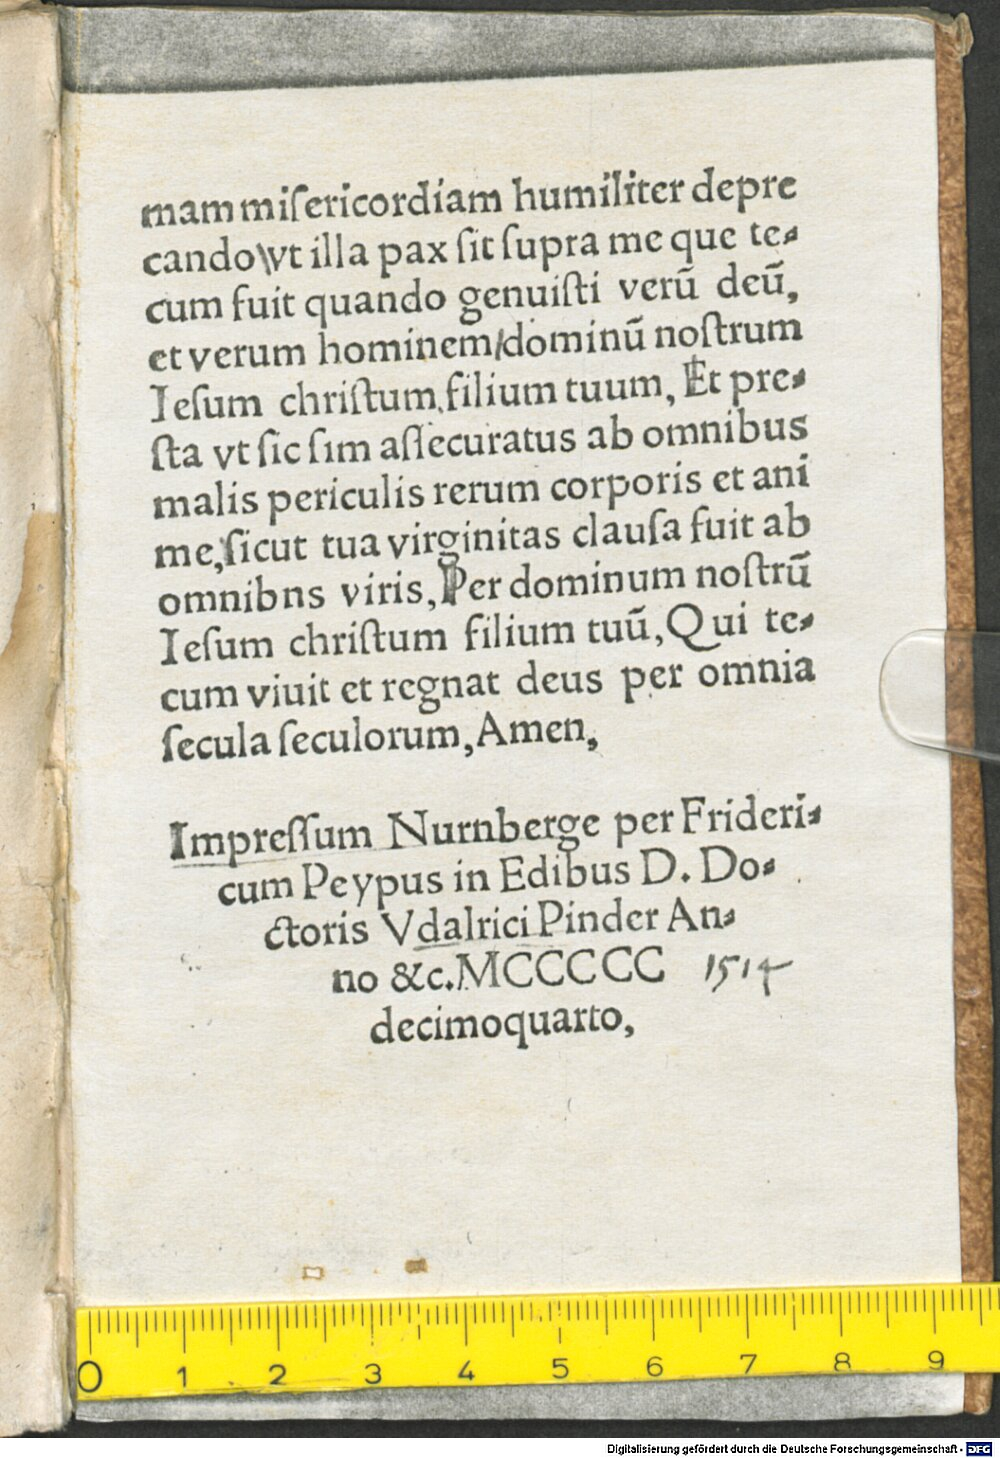 mam miſericordiam humiliter depre
cando\vt illa pax ſit ſupra me que te⸗
cum fuit quando genuiſti verū deū,
et verum hominem/dominū noſtrum
Ieſum chriſtum,filium tuum, Et pre⸗
ſta vt ſic ſim aſſecuratus ab omnibus
malis periculis rerum corporis et ani
me,ſicut tua virginitas clauſa fuit ab
omnibns viris, Per dominum noſtrū
Ieſum chriſtum filium tuū, Qui te⸗
cum viuit et regnat deus per omnia
ſecula ſeculorum, Amen,
Impreſſum Nurnberge per Frideri⸗
cum Peypus in Edibus D. Do⸗
ctoris Vdalrici Pinder An⸗
no &c. MCCCCC 1514
decimoquarto,
0 1 2 3 4 5 6 7 8 9
Digitalisierung gefördert durch die Deutsche Forschungsgemeinschaft - DFG